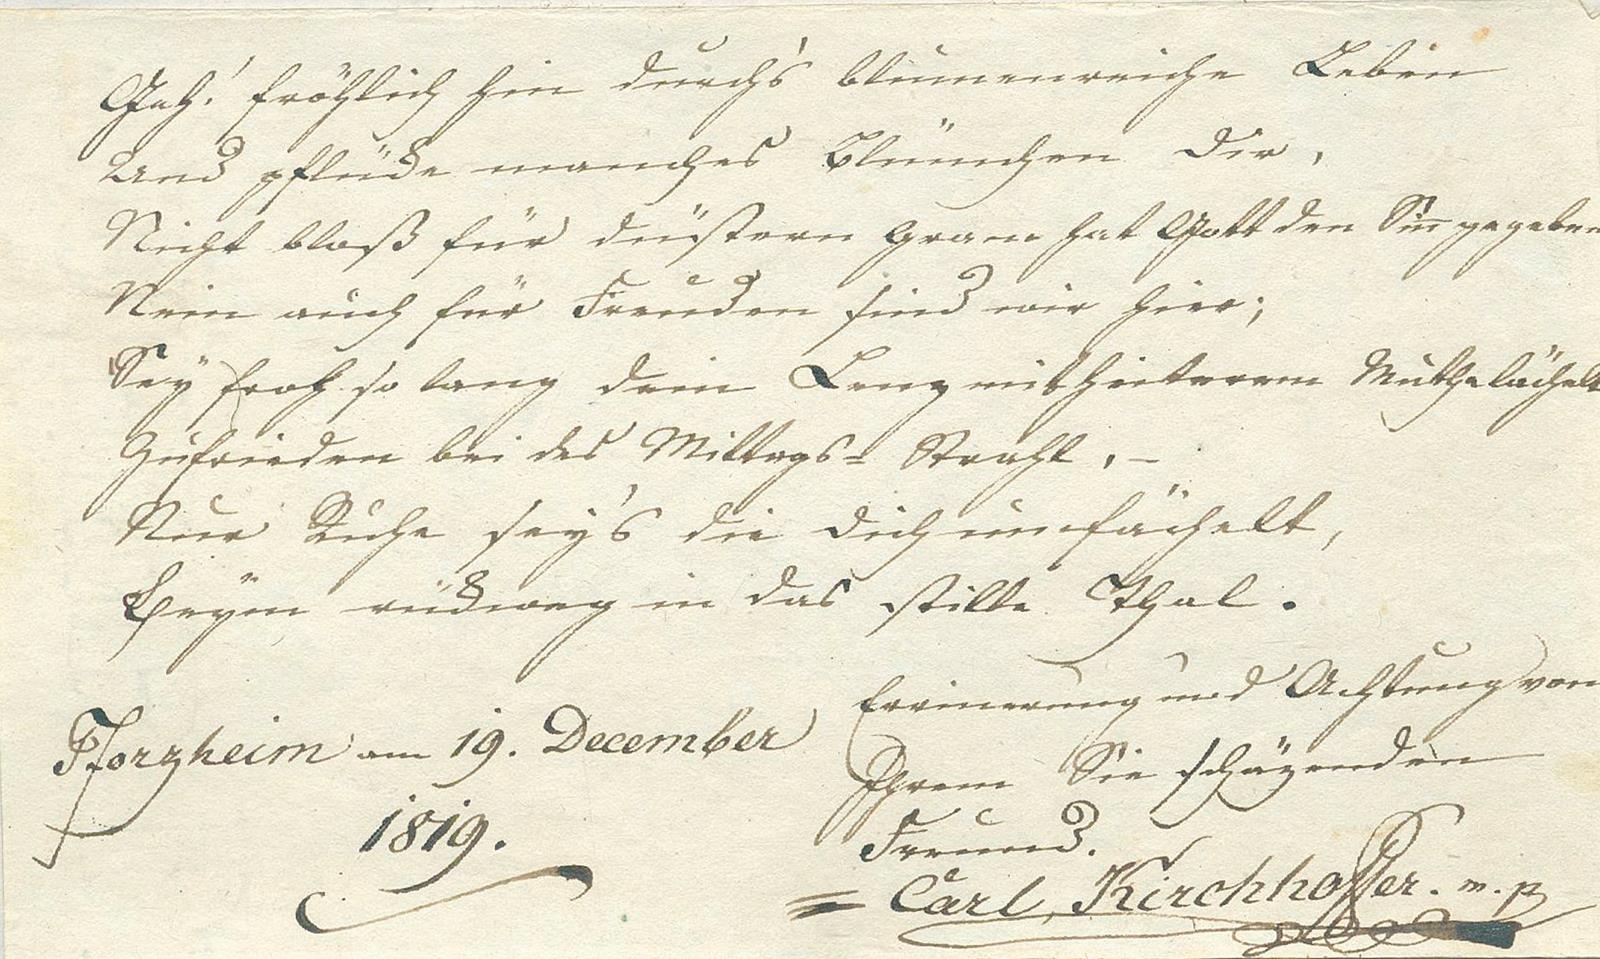 Geh! fröhlich hin durch's blumenreiche Leben
Und pflücke manches Blümchen Dir,
Nicht bloß für düstern Gram hat Gott den Sinn gegeben
Nein auch für Freuden sind wir hier;
Sey froh so lang dein Lenz mit heiterem Muthe lächelt
Zufrieden bei des Mittags- Strahl. –
Nur Ruhe sey's die dich umfächelt,
rückweg in das stille Thal.
Errinerung und Achtung von
Ihrem Sie schäzenden
Freund.
Pforzheim am 19. December
1819.
Carl Kirchhoffer. m. p